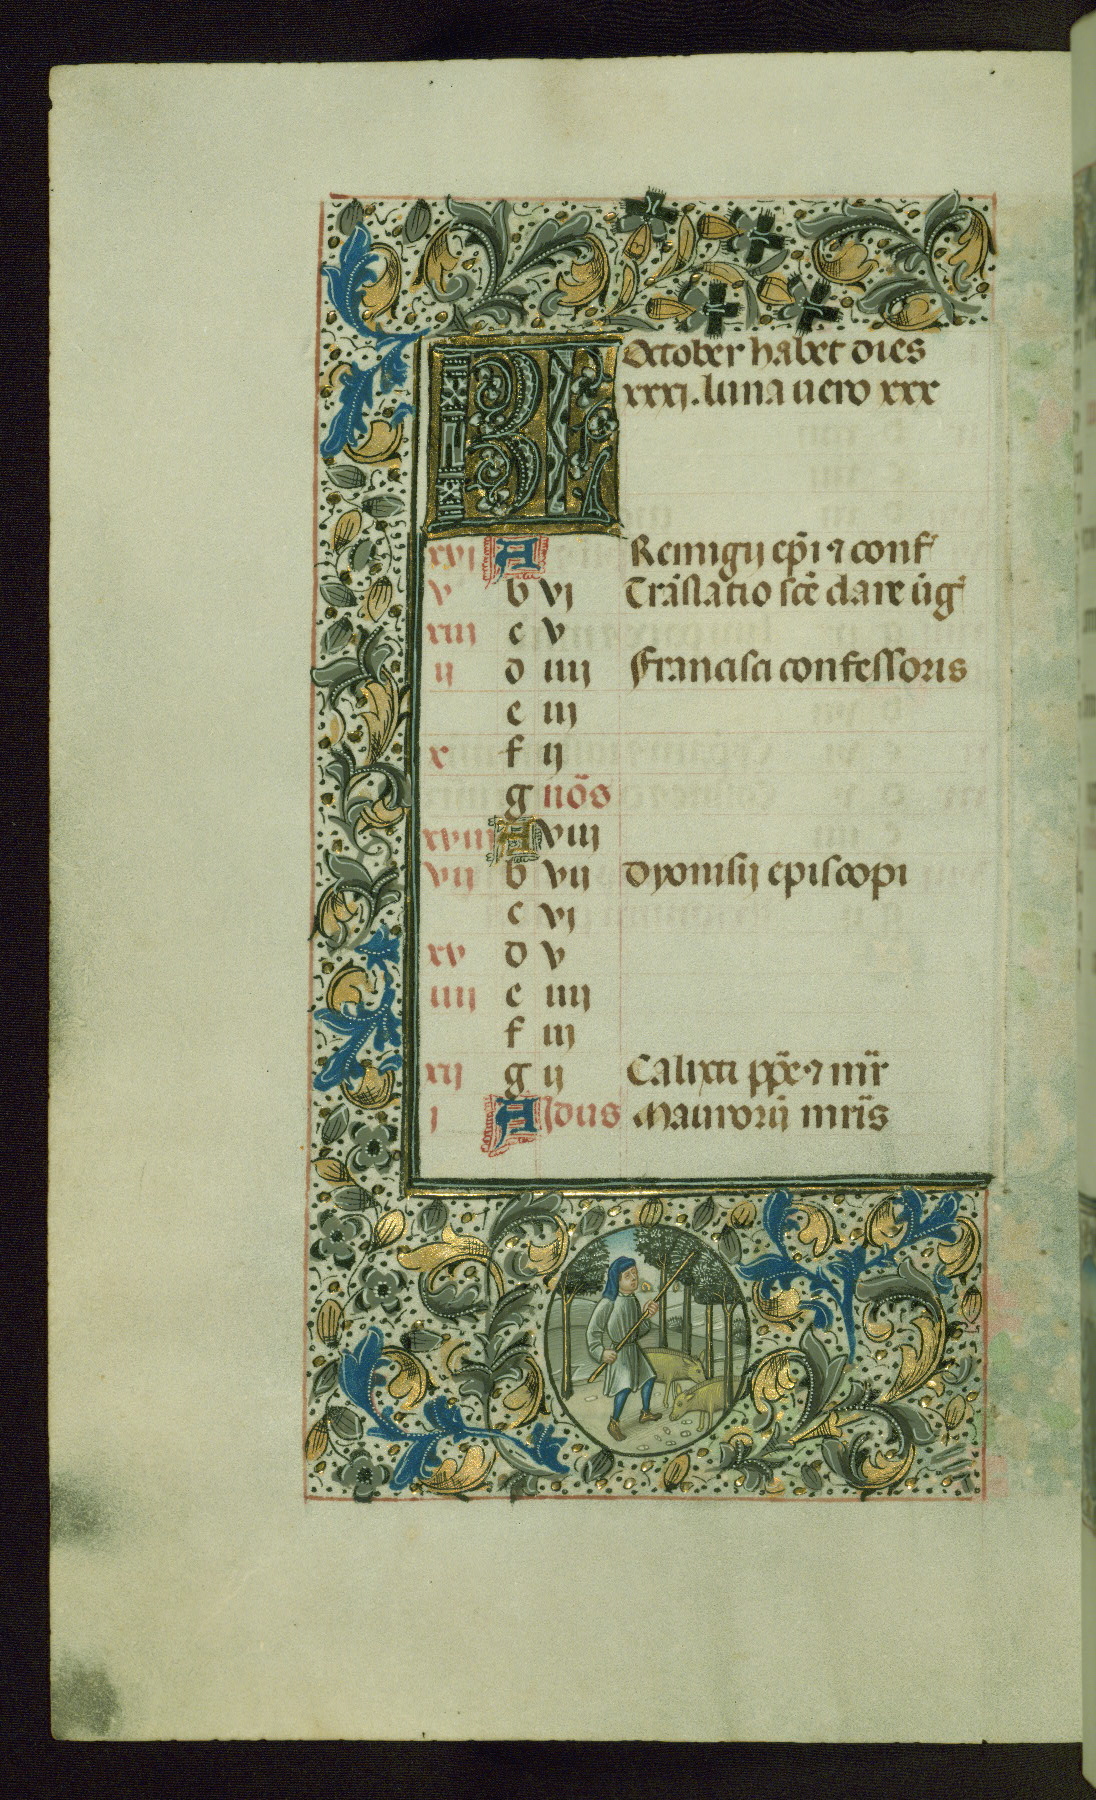 KL October habet dies
xxxj. luna uero xxx
xvj A Remigij ep̄i ⁊ conf̄
v b vj Trāslatio scē clare ūḡ
xiij c v
ij d iiij Francisci confessoris
e iij
x f ij
g nōs
xviij A viij
vij b vij Dyonisij episcopi
c vj
xv d v
iiij e iiij
f iij
xij g ij Calixti pp̄e ⁊ mr̄
j A Jdus Maurorū mr̄is